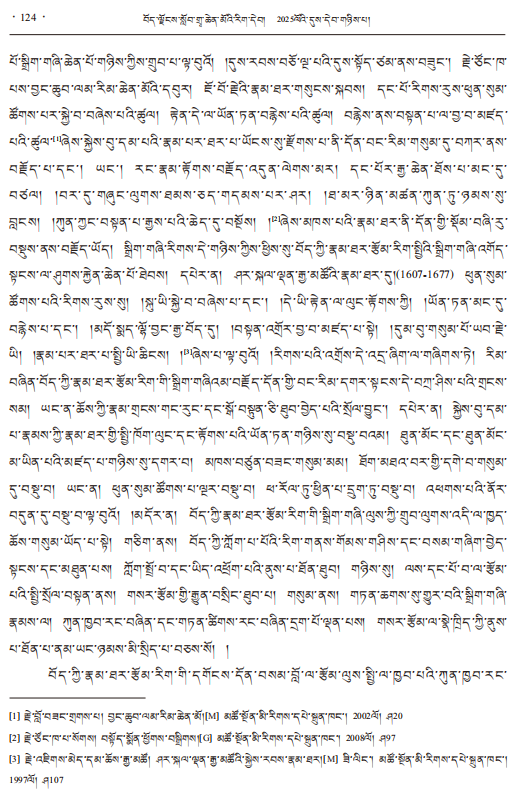 · 124 · བོད་ལྗོངས་སློབ་གྲྭ་ཆེན་མོའི་རིག་དེབ། 2025ལོའི་དུས་དེབ་གཉིས་པ།
པོ་སྒྲིག་གཞི་ཆེན་པོ་གཉིས་ཀྱིས་གྲུབ་པ་ལྟ་བུའོ། །དུས་རབས་བཅོ་ལྔ་པའི་དུས་སྟོད་ཙམ་ནས་བཟུང་། རྗེ་ཙོང་ཁ་
པས་བྱང་ཆུབ་ལམ་རིམ་ཆེན་མོའི་དབུར། ཇོ་བོ་རྗེའི་རྣམ་ཐར་གསུངས་སྐབས། དང་པོ་རིགས་རུས་ཕུན་སུམ་
ཚོགས་པར་སྐྱེ་བ་བཞེས་པའི་ཚུལ། རྟེན་དེ་ལ་ཡོན་ཏན་བརྙེས་པའི་ཚུལ། བརྙེས་ནས་བསྟན་པ་ལ་བྱ་བ་མཛད་
པའི་ཚུལ་[1]ཞེས་སྐྱེས་བུ་དམ་པའི་རྣམ་པར་ཐར་པ་ཡོངས་སུ་རྫོགས་པ་ནི་དོན་བང་རིམ་གསུམ་དུ་བཀར་ནས་
བརྗོད་པ་དང་། ཡང་། རང་རྣམ་རྟོགས་བརྗོད་འདུན་ལེགས་མར། དང་པོར་རྒྱ་ཆེན་ཐོས་པ་མང་དུ་
བཙལ། །བར་དུ་གཞུང་ལུགས་ཐམས་ཅད་གདམས་པར་ཤར། །ཐ་མར་ཉིན་མཚན་ཀུན་ཏུ་ཉམས་སུ་
བླངས། །ཀུན་ཀྱང་བསྟན་པ་རྒྱས་པའི་ཆེད་དུ་བསྔོས། །[2]ཞེས་མཁས་པའི་རྣམ་ཐར་ནི་དོན་གྱི་སྡོམ་བཞི་རུ་
བསྡུས་ནས་བརྗོད་ཡོད། སྒྲིག་གཞི་རིགས་དེ་གཉིས་ཀྱིས་ཕྱིས་སུ་བོད་ཀྱི་རྣམ་ཐར་རྩོམ་རིག་སྤྱིའི་སྒྲིག་གཞི་འགོད་
སྟངས་ལ་ཤུགས་རྐྱེན་ཆེན་པོ་ཐེབས། དཔེར་ན། ཤར་སྐལ་ལྡན་རྒྱ་མཚོའི་རྣམ་ཐར་དུ།(1607-1677) ཕུན་སུམ་
ཚོགས་པའི་རིགས་རུས་སུ། །སྐུ་ཡི་སྐྱེ་བ་བཞེས་པ་དང་། །དེ་ཡི་རྟེན་ལ་ལུང་རྟོགས་ཀྱི། །ཡོན་ཏན་མང་དུ་
བརྙེས་པ་དང་། །མདོ་སྨད་ལྷོ་བྱང་རྒྱ་བོད་དུ། །བསྟན་འགྲོར་བྱ་བ་མཛད་པ་སྟེ། །དུམ་བུ་གསུམ་པོ་ཡབ་རྗེ་
ཡི། །རྣམ་པར་ཐར་པ་སྤྱི་ཡི་ཆིངས། །[3]ཞེས་པ་ལྟ་བུའོ། །རིགས་པའི་འགྲོས་དེ་འདྲ་ཞིག་ལ་གཞིགས་ཏེ། རིམ་
བཞིན་བོད་ཀྱི་རྣམ་ཐར་རྩོམ་རིག་གི་སྒྲིག་གཞིའམ་བརྗོད་དོན་གྱི་བང་རིམ་དགར་སྟངས་དེ་བཀྲ་ཤིས་པའི་གྲངས་
སམ། ཡང་ན་ཆོས་ཀྱི་རྣམ་གྲངས་གང་རུང་དང་སྒོ་བསྟུན་ཅི་ཐུབ་བྱེད་པའི་སྲོལ་བྱུང་། དཔེར་ན། སྐྱེས་བུ་དམ་
པ་རྣམས་ཀྱི་རྣམ་ཐར་གྱི་སྤྱི་ཁོག་ལུང་དང་རྟོགས་པའི་ཡོན་ཏན་གཉིས་སུ་བསྡུ་བའམ། ཐུན་མོང་དང་ཐུན་མོང་
མ་ཡིན་པའི་མཛད་པ་གཉིས་སུ་དགར་བ། མཁས་བཙུན་བཟང་གསུམ་མམ། ཐོག་མཐའ་བར་གྱི་དགེ་བ་གསུམ་
དུ་བསྡུ་བ། ཡང་ན། ཕུན་སུམ་ཚོགས་པ་ལྔར་བསྡུ་བ། ཕ་རོལ་ཏུ་ཕྱིན་པ་དྲུག་ཏུ་བསྡུ་བ། འཕགས་པའི་ནོར་
བདུན་དུ་བསྡུ་བ་ལྟ་བུའོ། །མདོར་ན། བོད་ཀྱི་རྣམ་ཐར་རྩོམ་རིག་གི་སྒྲིག་གཞི་ལུས་ཀྱི་གྲུབ་ལུགས་འདི་ལ་ཁྱད་
ཆོས་གསུམ་ཡོད་པ་སྟེ། གཅིག་ནས། བོད་ཀྱི་ཀློག་པ་པོའི་རིག་གནས་གོམས་གཤིས་དང་བསམ་གཞིག་བྱེད་
སྟངས་དང་མཐུན་པས། ཀློག་སྤྲོ་བ་དང་ཡིད་འཕྲོག་པའི་ནུས་པ་ཐོན་ཐུབ། གཉིས་སུ། ལས་དང་པོ་བ་ལ་རྩོམ་
པའི་སྤྱི་སྲོལ་བསྟན་ནས། གསར་རྩོམ་གྱི་རྒྱུན་བསྲིང་ཐུབ་པ། གསུམ་ནས། གཏན་ཆགས་སུ་གྱུར་བའི་སྒྲིག་གཞི་
རྣམས་ལ། ཀུན་ཁྱབ་རང་བཞིན་དང་གཏན་ཚིགས་རང་བཞིན་དྲག་པོ་ལྡན་པས། གསར་རྩོམ་ལ་སྣེ་ཁྲིད་ཀྱི་ནུས་
པ་ཐོན་པ་ནམ་ཡང་ཉམས་མི་སྲིད་པ་བཅས་སོ། །
བོད་ཀྱི་རྣམ་ཐར་རྩོམ་རིག་གི་དགོངས་དོན་བསམ་བློ་ལ་རྩོམ་ལུས་སྤྱི་ལ་ཁྱབ་པའི་ཀུན་ཁྱབ་རང་
[1] རྗེ་བློ་བཟང་གྲགས་པ། བྱང་ཆུབ་ལམ་རིམ་ཆེན་མོ།[M] མཚོ་སྔོན་མི་རིགས་དཔེ་སྐྲུན་ཁང་། 2002ལོ། ཤ20
[2] རྗེ་ཙོང་ཁ་པ་སོགས། བསྟོད་སྨོན་ཕྱོགས་བསྒྲིགས།[G] མཚོ་སྔོན་མི་རིགས་དཔེ་སྐྲུན་ཁང་། 2008ལོ། ཤ97
[3] རྗེ་འཇིགས་མེད་དམ་ཆོས་རྒྱ་མཚོ། ཤར་སྐལ་ལྡན་རྒྱ་མཚོའི་སྐྱེས་རབས་རྣམ་ཐར།[M] ཟི་ལིང་། མཚོ་སྔོན་མི་རིགས་དཔེ་སྐྲུན་ཁང་།
1997ལོ། ཤ107